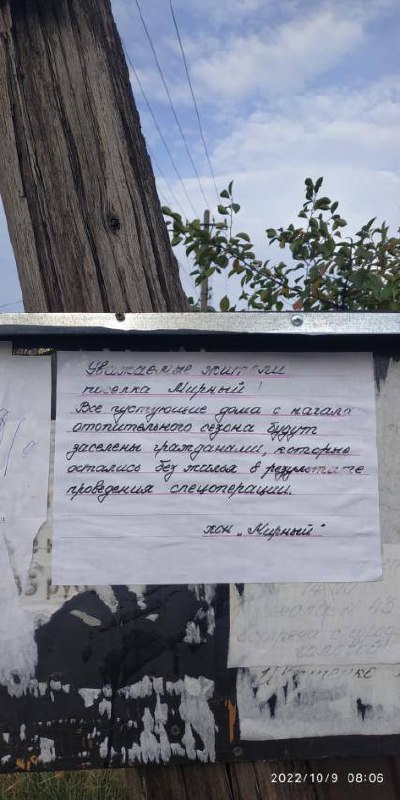 Уважаемые жители
поселка Мирный !
Все пустующие дома с начала
отопительного сезона будут
заселены гражданами, которые
остались без жилья в результате
проведения спецоперации.
"Мирный"
2022/10/9 08:06